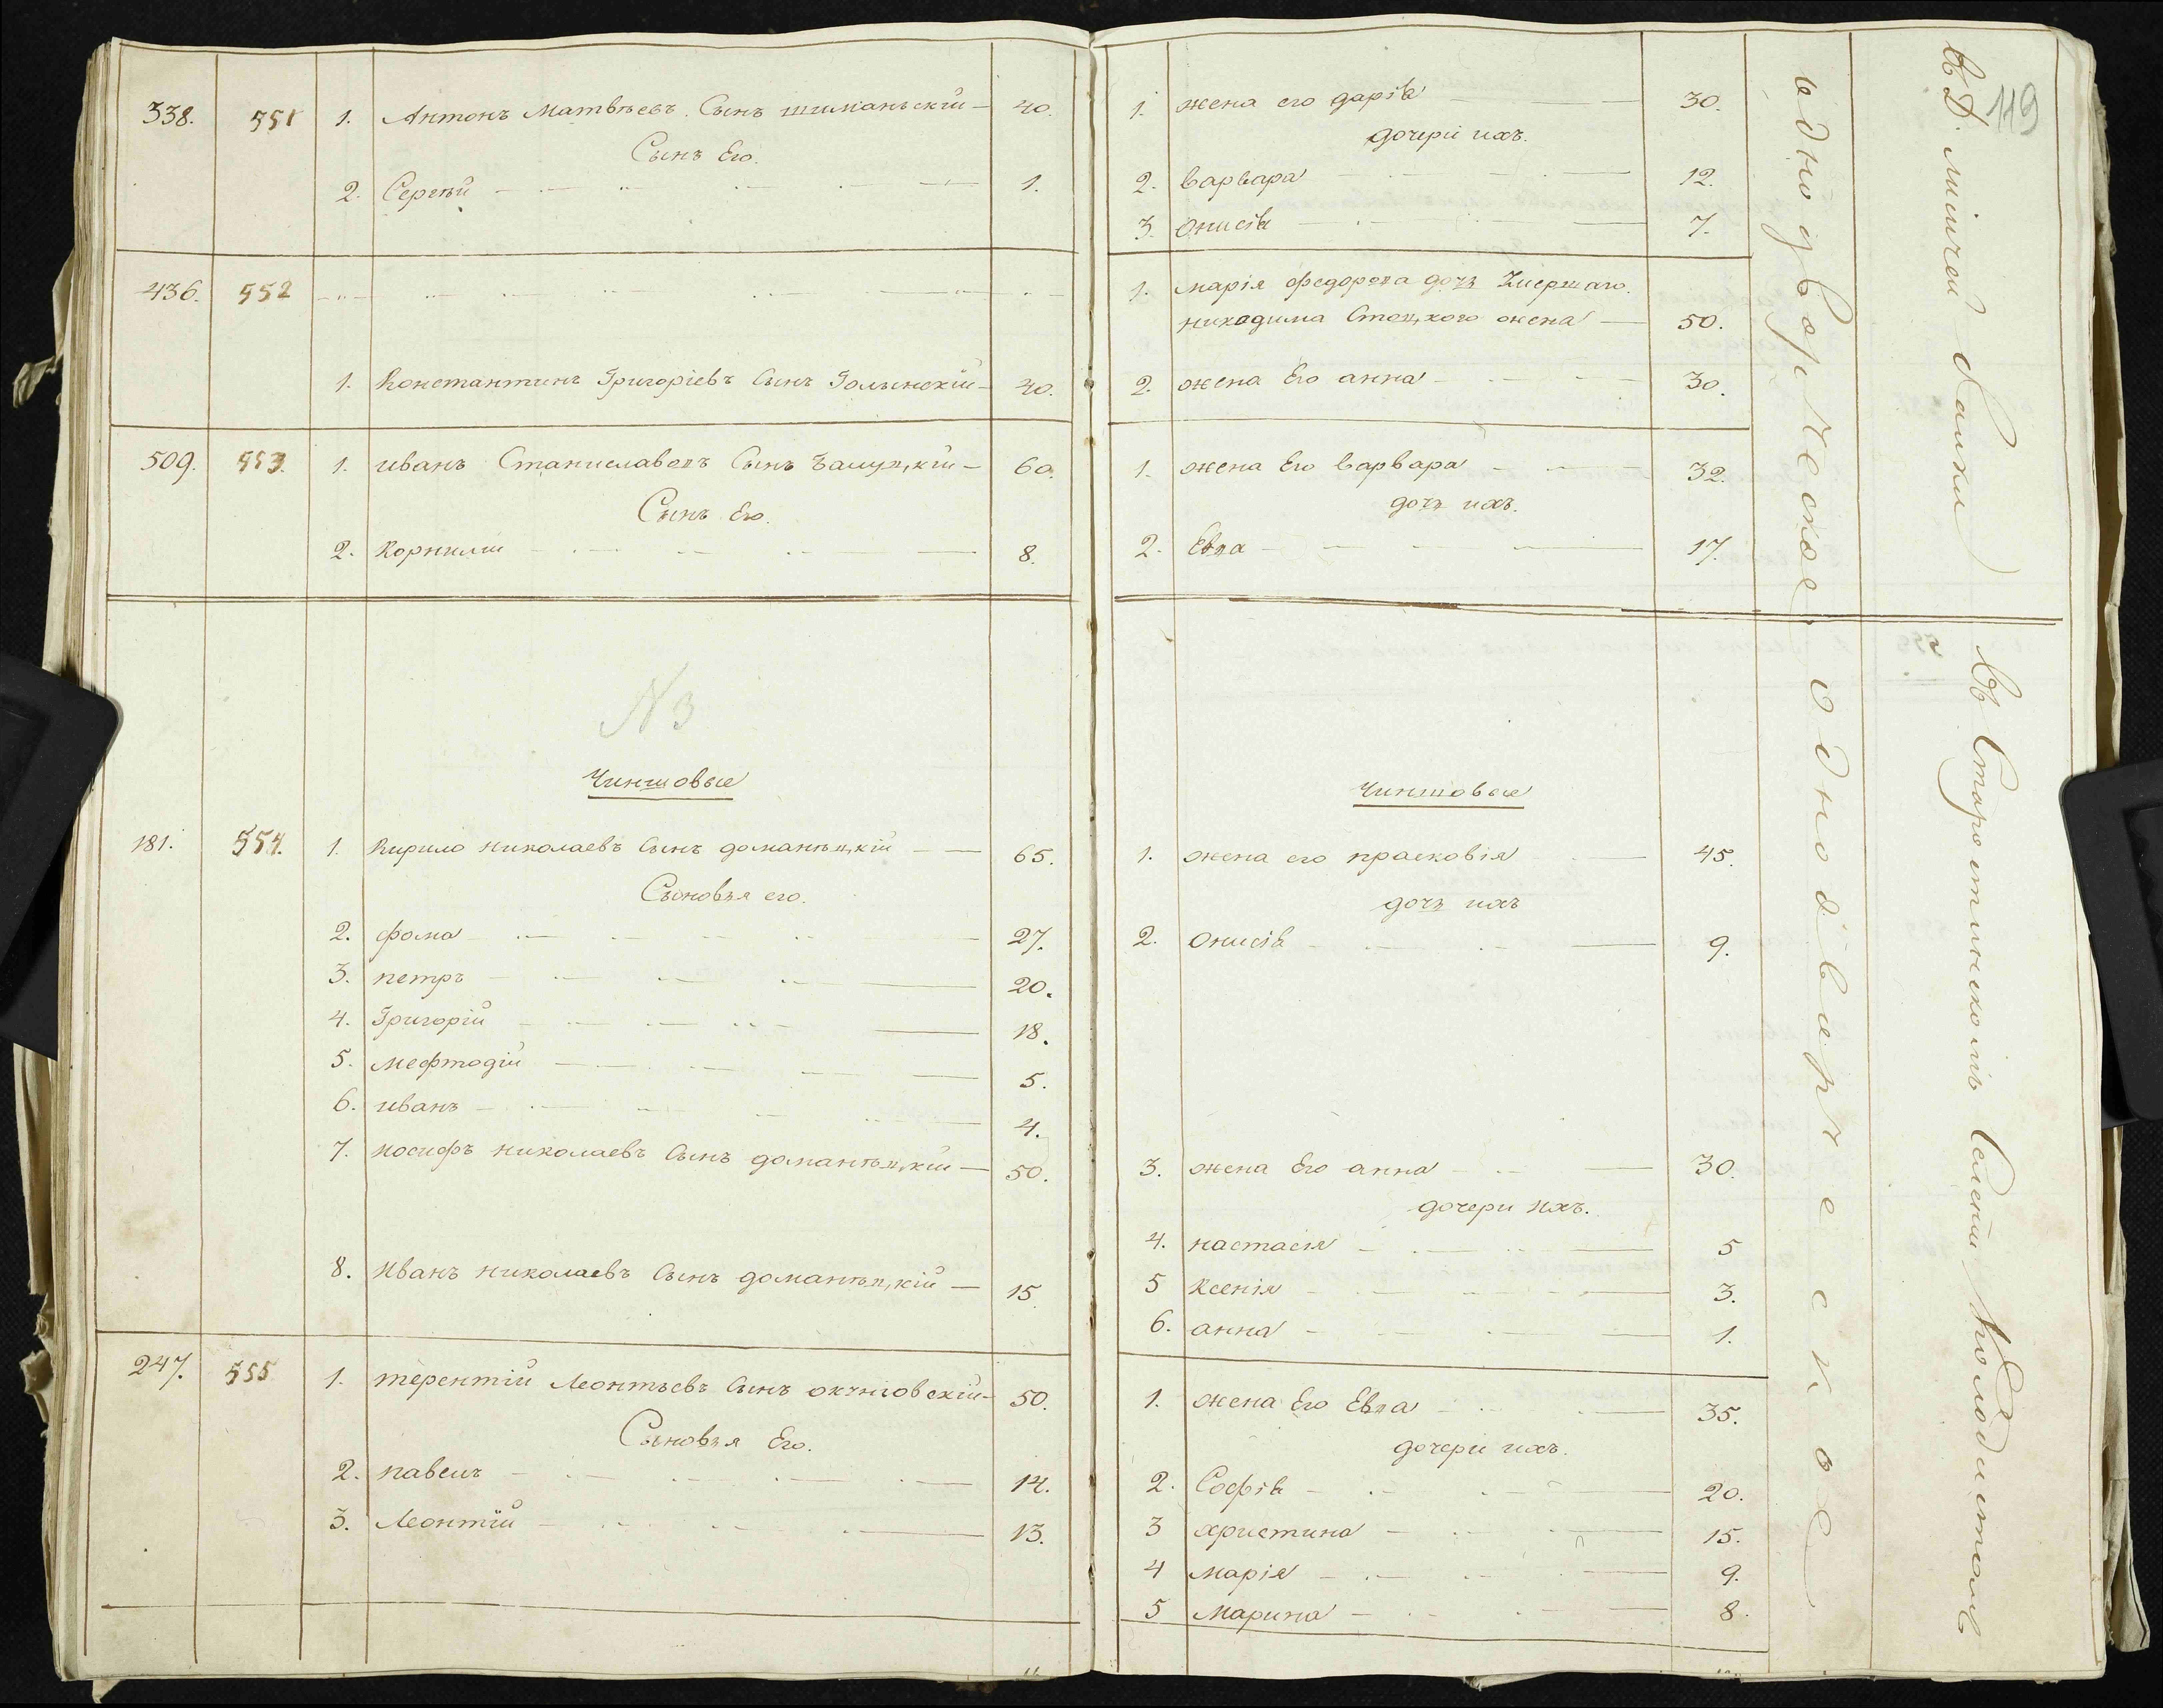 338. 551 1. Антонъ Матвѣевъ Сынъ шиманьскій — 40.
Сынъ Его.
2. Сергѣй 1.
436. 552
1. Константинъ Григоріевъ Сынъ Голынскій — 40.
509. 553. 1. иванъ Станиславовъ Сынъ Залуцкій — 60.
Сынъ Его.
2. Корнилій 8.
N 3
Чиншовые
181. 554. 1. Кирило николаевъ Сынъ доманѣцкій — 65.
Сыновья его.
2. фома 27.
3. петръ 20.
4. Григорій 18.
5. мефтодій 5.
6. иванъ 4.
7. иосифъ николаевъ Сынъ доманѣцкій — 50.
8. Иванъ николаевъ Сынъ доманѣцкій — 15
247. 555 1. терентій Леонтьевъ Сынъ окунювскій — 50.
Сыновья Его.
2. павелъ 14.
3. Леонтій 13.
119
1. жена его дарія 30.
дочери ихъ.
2. варвара 12.
3. Онисія 7.
1. марія федорова дочь Умершаго
никодима Стоцкого жена — 50.
2. жена Его анна 30.
1. жена Его варвара 32.
дочь ихъ.
2. Евва 17.
Чиншовые
1. жена его прасковія 45.
дочь ихъ
2. Онисія 9.
3. жена Его анна 30.
дочери ихъ.
4. настасія 5
5 Ксенія 3.
6. анна 1.
1. жена Его Евва 35.
дочери ихъ.
2. Софія 20.
3 христина 15.
4 марія 9.
5 Марина 8.
однодворческое
однодворческое
въ Д.
въ Старостинскомъ Селеніи